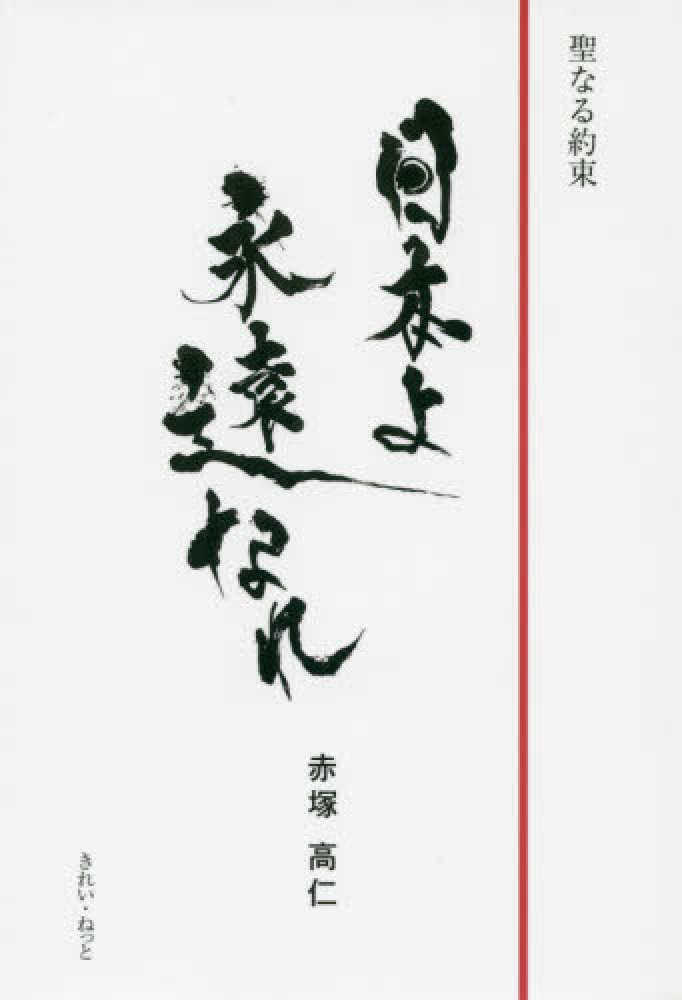 聖なる約束
日本よ
永遠なれ
赤塚 高仁
きれい・ねっと